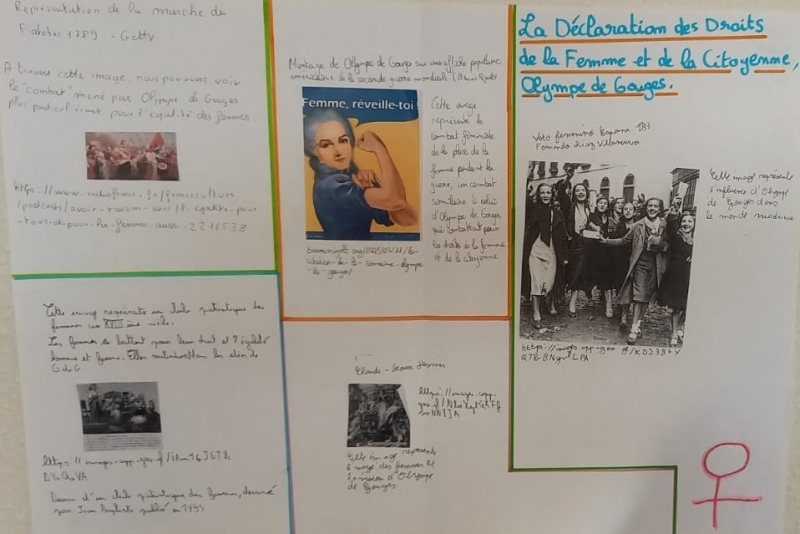 Représentation de la marche du
5 octobre 1789 - Getty
A travers cette image, nous pouvons voir
le "combat" mené par Olympe de Gouges
plus particulièrement pour l'égalité des femmes
https://www.radiofrance.fr/franceculture
/podcasts/avoir-raison-avec/l-egalite-pour
-tous-et-pour-les-femmes-aussi-2211538
Montage de Olympe de Gouges sur une affiche populaire
américaine de la seconde guerre mondiale
Femme, réveille-toi !
Cette image
représente le
combat féministe
de la place de la
femme pendant la
guerre, un combat
similaire à celui
d'Olympe de Gouges
qui combattait pour
les droits de la femme
et de la citoyenne
La Déclaration des Droits
de la Femme et de la Citoyenne,
Olympe de Gouges.
Voto femenino España 1933
Fernando Díaz Villanueva
Cette image représente
l'influence d'Olympe
de Gouges dans
le monde moderne
https://images.app.goo.gl/
Cette image représente un club patriotique des
femmes au XVIII ème siècle.
Les femmes se battent pour leur droit et l'égalité
homme et femme. Elles
https://images.app.goo.gl/
Dessin d'un club patriotique des femmes, dessiné
par Jean Baptiste publié en
Claude-
https://images.app.
goo.gl/
Cette image représente
l'image des femmes et
d'Olympe
de Gouges.